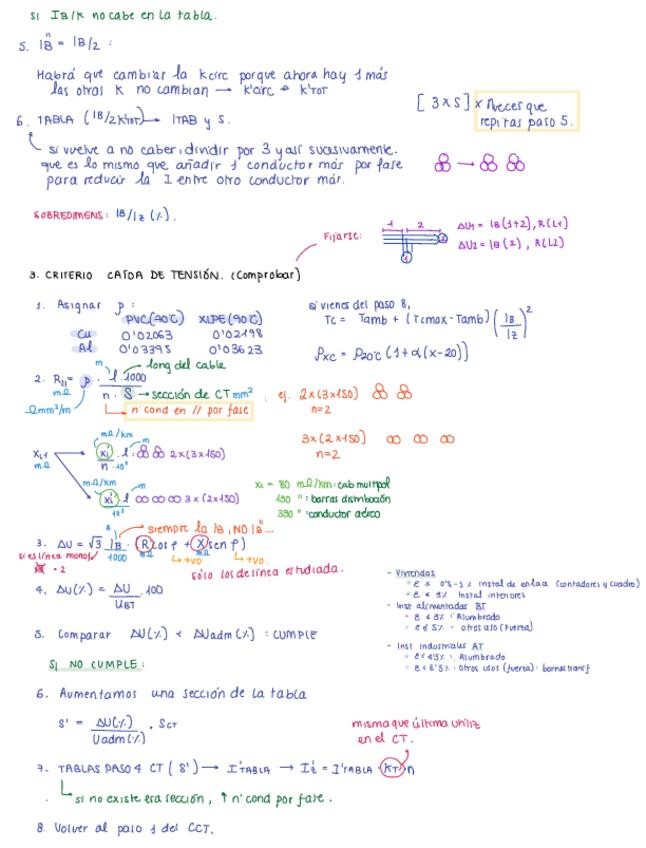 SI IB/K no cabe en la tabla.
5. IB'' = IB/2 :
Habrá que cambiar la Kcirc porque ahora hay 1 más
las otras K no cambian → K'circ → K'TOT
[3 x S] x nveces que
repitas paso 5.
6. TABLA (IB/2K'TOT) → ITAB y S.
si vuelve a no caber, dividir por 3 y así sucesivamente.
que es lo mismo que añadir 1 conductor más por fase
para reducir la I entre otro conductor más.
SOBREDIMENS: IB/Iz (%).
Fijarse:
1 2
ΔU1 = IB(1+2), R(L1)
ΔU2 = IB(2), R(L2)
3. CRITERIO CAÍDA DE TENSIÓN. (Comprobar)
1. Asignar ρ :
PVC(70ºC) XLPE(90ºC)
Cu 0'02063 0'02198
Al 0'03395 0'03623
si vienes del paso 8,
Tc = Tamb + (Tcmax - Tamb) (IB/Iz)²
ρxc = ρ20ºC (1+α(x-20))
2. RL1 = ρ · l · 1000 / n · S
m
long del cable
mΩ
Ωmm²/m
sección de CT mm²
n cond en // por fase
ej. 2x(3x150)
n=2
3x(2x150)
n=2
XL1
mΩ
mΩ/km
m
xi' · l : 2x(3x150)
n · 10³
mΩ/km
m
xi' l 3x(2x150)
10³
xi = 80 mΩ/km: cab multipol
190 " : barras distribución
390 " conductor aéreo
3. ΔU = √3 IB/1000 · (R cos φ + X sen φ)
A
siempre la IB, NO IB''...
si es línea monof
√3 · 2
mΩ mΩ
+tvo +tvo
sólo los de línea estudiada.
4. ΔU(%) = ΔU/UBT · 100
5. Comparar ΔU(%) < ΔUadm(%) : CUMPLE
- Viviendas
ε ≤ 0'5-1% instal de enlace (contadores y cuadro)
ε < 3% Instal interiores
- Inst alimentadas BT
ε < 3% : Alumbrado
ε < 5% · otros uso (Fuerza)
- Inst Industriales AT
ε < 4'5% : Alumbrado
ε < 6'5% : otros usos (fuerza): bornas transf
SI NO CUMPLE:
6. Aumentamos una sección de la tabla
S' = ΔU(%)/Uadm(%) · SCT
misma que última utiliz
en el CT.
7. TABLAS PASO 4 CT (S') → I'TABLA → I'z = I'TABLA · KT · n
si no existe esa sección, ↑ nº cond por fase.
8. Volver al paso 1 del CCT.